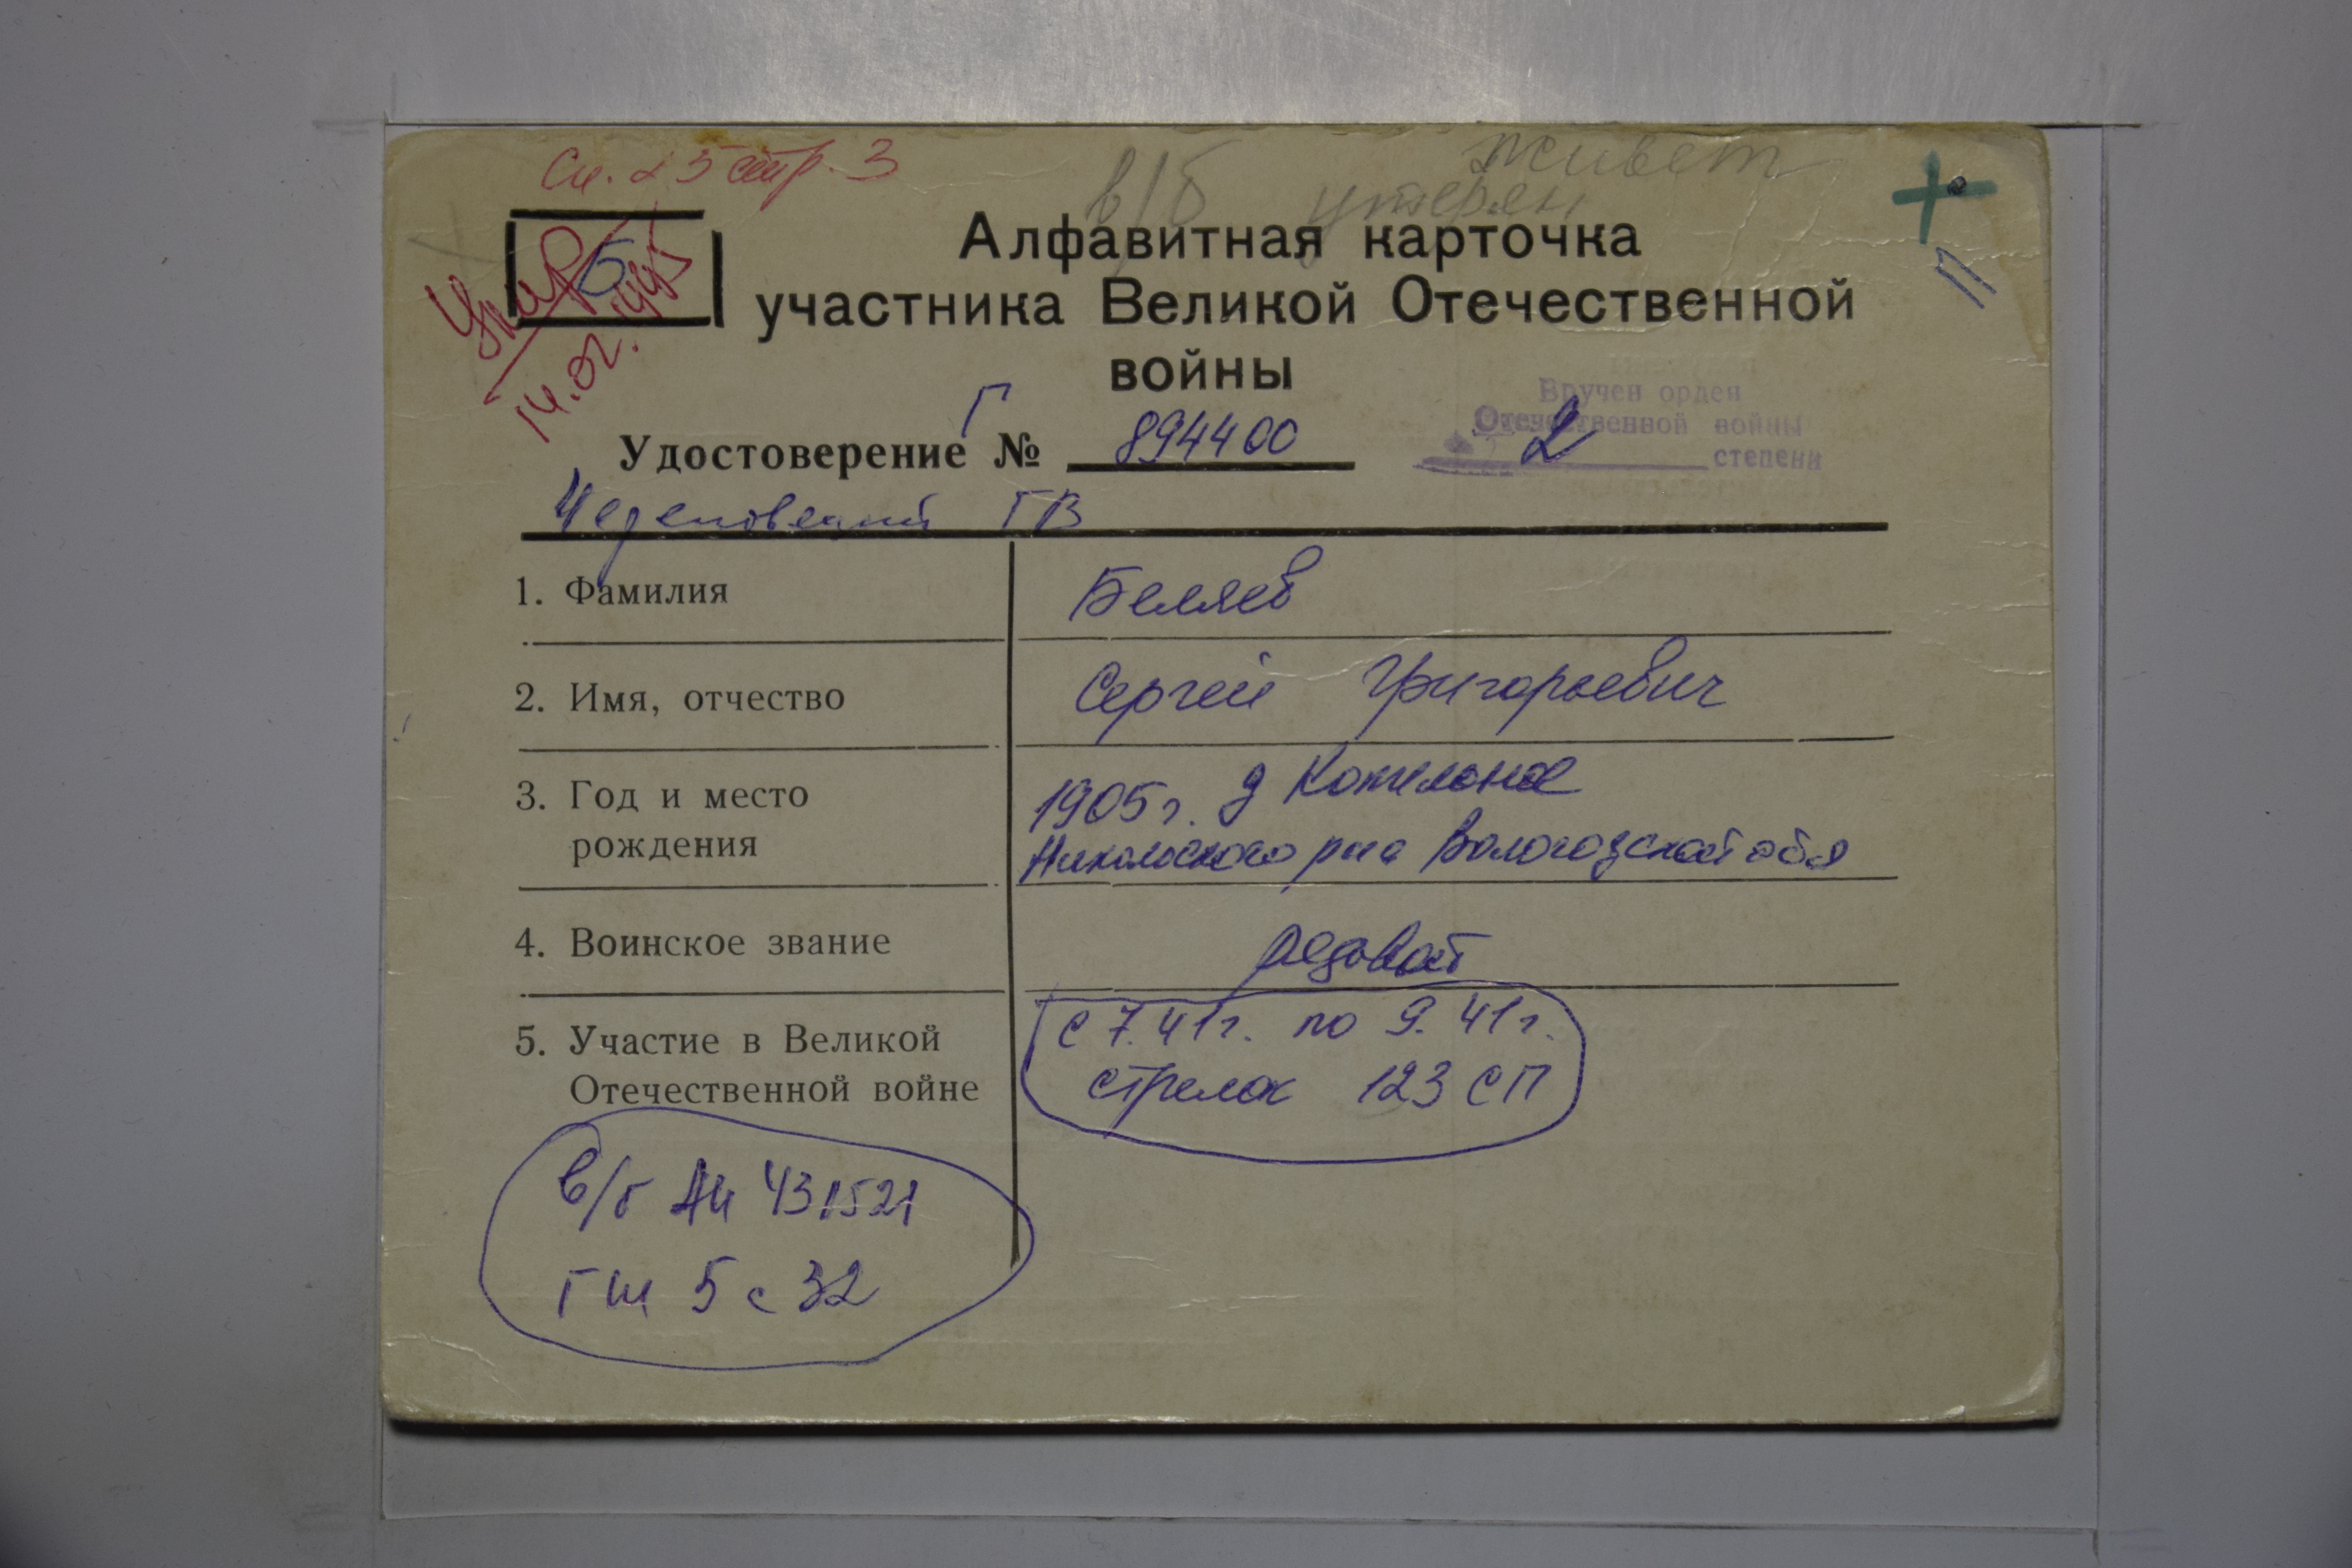 Сп. 25 стр. 3
живет
в/б утерян
Б
Умер
14.02.1995
Алфавитная карточка
участника Великой Отечественной
войны
Удостоверение Г № 894400
Вручен орден
Отечественной войны
2 степени
Череповецкий ГВ
1. Фамилия Беляев
2. Имя, отчество Сергей Григорьевич
3. Год и место рождения
1905г. д
Никольского р-на Вологодской обл
4. Воинское звание рядовой
5. Участие в Великой
Отечественной войне
с 7.41г. по 9.41г.
стрелок 123 СП
в/б 431521
ГШ 5 с 32